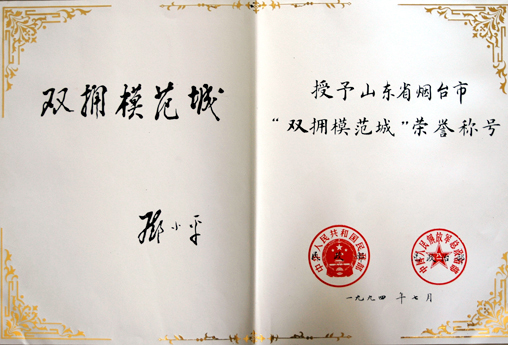 双拥模范城
邓小平
授予山东省烟台市
“双拥模范城”荣誉称号
中华人民共和国民政部
中国人民解放军总政治部
一九九四年七月